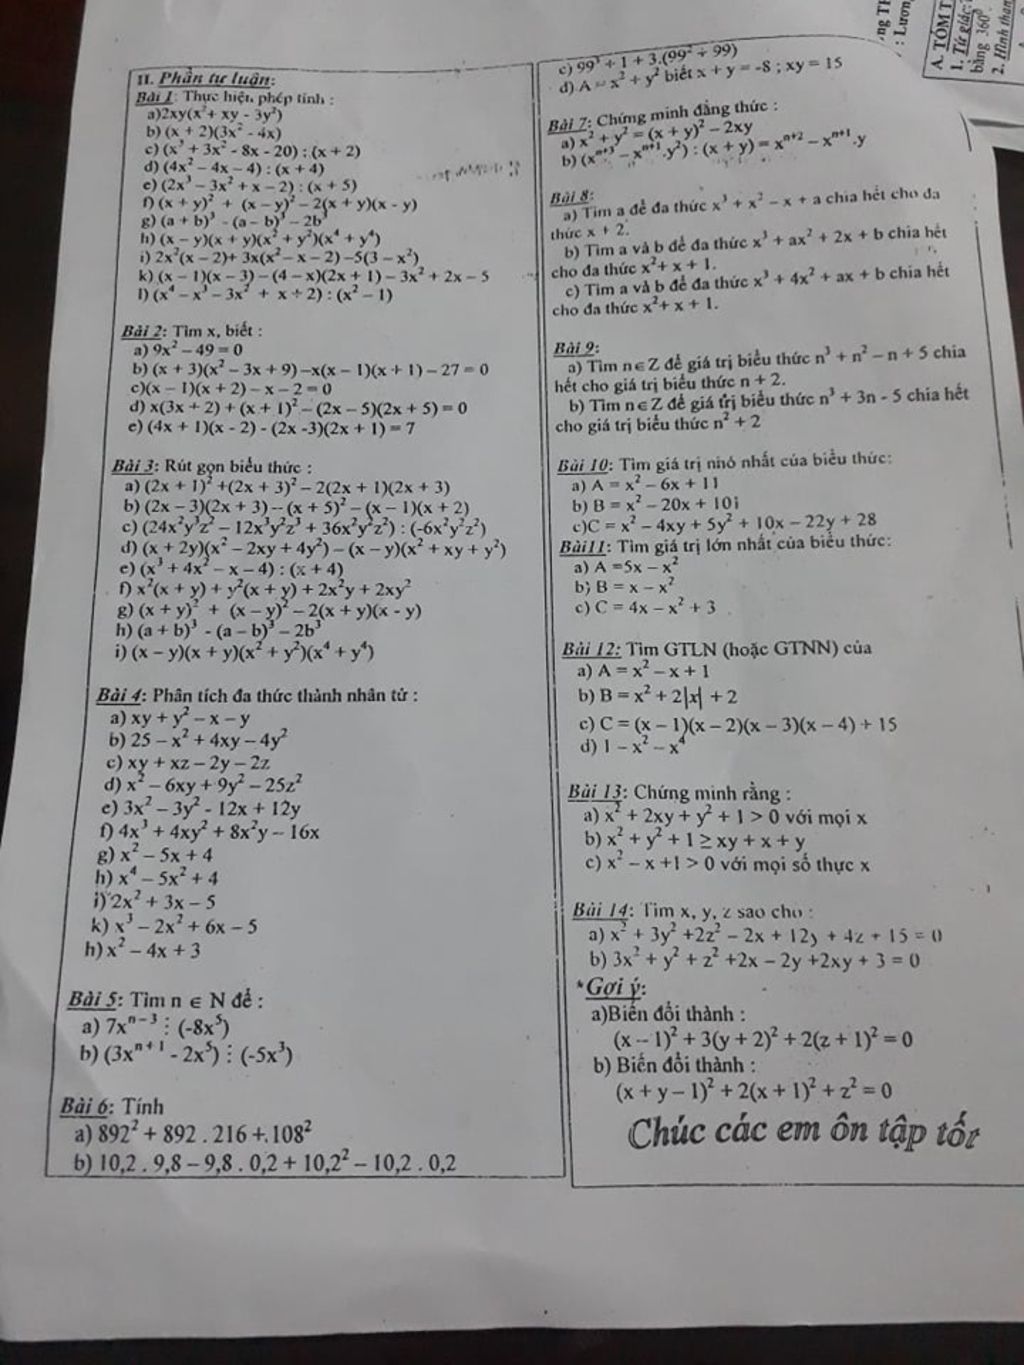 II. Phần tự luận:
Bài 1: Thực hiện phép tính :
a)2xy(x² + xy - 3y²)
b) (x + 2)(3x² - 4x)
c) (x³ + 3x² - 8x - 20) : (x + 2)
d) (4x² – 4x – 4) : (x + 4)
e) (2x³ – 3x² + x – 2) : (x + 5)
f) (x + y)² + (x – y)² – 2(x + y)(x - y)
g) (a + b)³ - (a – b)³ – 2b³
h) (x – y)(x + y)(x² + y²)(x⁴ + y⁴)
i) 2x²(x – 2)+ 3x(x² – x – 2) –5(3 – x²)
k) (x – 1)(x – 3) – (4 – x)(2x + 1) – 3x² + 2x – 5
l) (x⁴ – x³ – 3x² + x + 2) : (x² – 1)
Bài 2: Tìm x, biết :
a) 9x² – 49 = 0
b) (x + 3)(x² – 3x + 9) –x(x – 1)(x + 1) – 27 = 0
c)(x – 1)(x + 2) – x – 2 = 0
d) x(3x + 2) + (x + 1)² – (2x – 5)(2x + 5) = 0
e) (4x + 1)(x - 2) - (2x -3)(2x + 1) = 7
Bài 3: Rút gọn biểu thức :
a) (2x + 1)² +(2x + 3)² – 2(2x + 1)(2x + 3)
b) (2x – 3)(2x + 3) – (x + 5)² – (x – 1)(x + 2)
c) (24x²y³z² – 12x³y²z³ + 36x²y²z²) : (-6x²y²z²)
d) (x + 2y)(x² – 2xy + 4y²) – (x – y)(x² + xy + y²)
e) (x³ + 4x² – x – 4) : (x + 4)
f) x²(x + y) + y²(x + y) + 2x²y + 2xy²
g) (x + y)² + (x – y)² – 2(x + y)(x - y)
h) (a + b)³ - (a – b)³ – 2b³
i) (x – y)(x + y)(x² + y²)(x⁴ + y⁴)
Bài 4: Phân tích đa thức thành nhân tử :
a) xy + y² – x – y
b) 25 – x² + 4xy – 4y²
c) xy + xz – 2y – 2z
d) x² – 6xy + 9y² – 25z²
e) 3x² – 3y² - 12x + 12y
f) 4x³ + 4xy² + 8x²y – 16x
g) x² – 5x + 4
h) x⁴ – 5x² + 4
i) 2x² + 3x – 5
k) x³ – 2x² + 6x – 5
h) x² – 4x + 3
Bài 5: Tìm n ∈ N để :
a) 7xⁿ⁻³ ⋮ (-8x⁵)
b) (3xⁿ⁺¹ - 2x⁵) ⋮ (-5x³)
Bài 6: Tính
a) 892² + 892 . 216 + 108²
b) 10,2 . 9,8 – 9,8 . 0,2 + 10,2² – 10,2 . 0,2
c) 99³ + 1 + 3.(99² + 99)
d) A = x² + y² biết x + y = -8 ; xy = 15
Bài 7: Chứng minh đẳng thức :
a) x² + y² = (x + y)² – 2xy
b) (xⁿ⁺³ – xⁿ⁺¹.y²) : (x + y) = xⁿ⁺² – xⁿ⁺¹.y
Bài 8:
a) Tìm a để đa thức x³ + x² – x + a chia hết cho đa
thức x + 2.
b) Tìm a và b để đa thức x³ + ax² + 2x + b chia hết
cho đa thức x²+ x + 1.
c) Tìm a và b để đa thức x³ + 4x² + ax + b chia hết
cho đa thức x²+ x + 1.
Bài 9:
a) Tìm n∈Z để giá trị biểu thức n³ + n² – n + 5 chia
hết cho giá trị biểu thức n + 2.
b) Tìm n∈Z để giá trị biểu thức n³ + 3n - 5 chia hết
cho giá trị biểu thức n² + 2
Bài 10: Tìm giá trị nhỏ nhất của biểu thức:
a) A = x² – 6x + 11
b) B = x² – 20x + 101
c)C = x² – 4xy + 5y² + 10x – 22y + 28
Bài11: Tìm giá trị lớn nhất của biểu thức:
a) A =5x – x²
b) B = x – x²
c) C = 4x – x² + 3
Bài 12: Tìm GTLN (hoặc GTNN) của
a) A = x² – x + 1
b) B = x² + 2|x| + 2
c) C = (x – 1)(x – 2)(x – 3)(x – 4) + 15
d) 1 – x² – x⁴
Bài 13: Chứng minh rằng :
a) x² + 2xy + y² + 1 > 0 với mọi x
b) x² + y² + 1 ≥ xy + x + y
c) x² – x +1 > 0 với mọi số thực x
Bài 14: Tìm x, y, z sao cho :
a) x² + 3y² +2z² – 2x + 12y + 4z + 15 = 0
b) 3x² + y² + z² +2x – 2y +2xy + 3 = 0
*Gợi ý:
a)Biến đổi thành :
(x – 1)² + 3(y + 2)² + 2(z + 1)² = 0
b) Biến đổi thành :
(x + y – 1)² + 2(x + 1)² + z² = 0
Chúc các em ôn tập tốt
A. TÓM T
1. Tứ giác:
bằng 360⁰
2. Hình than
: Lươn